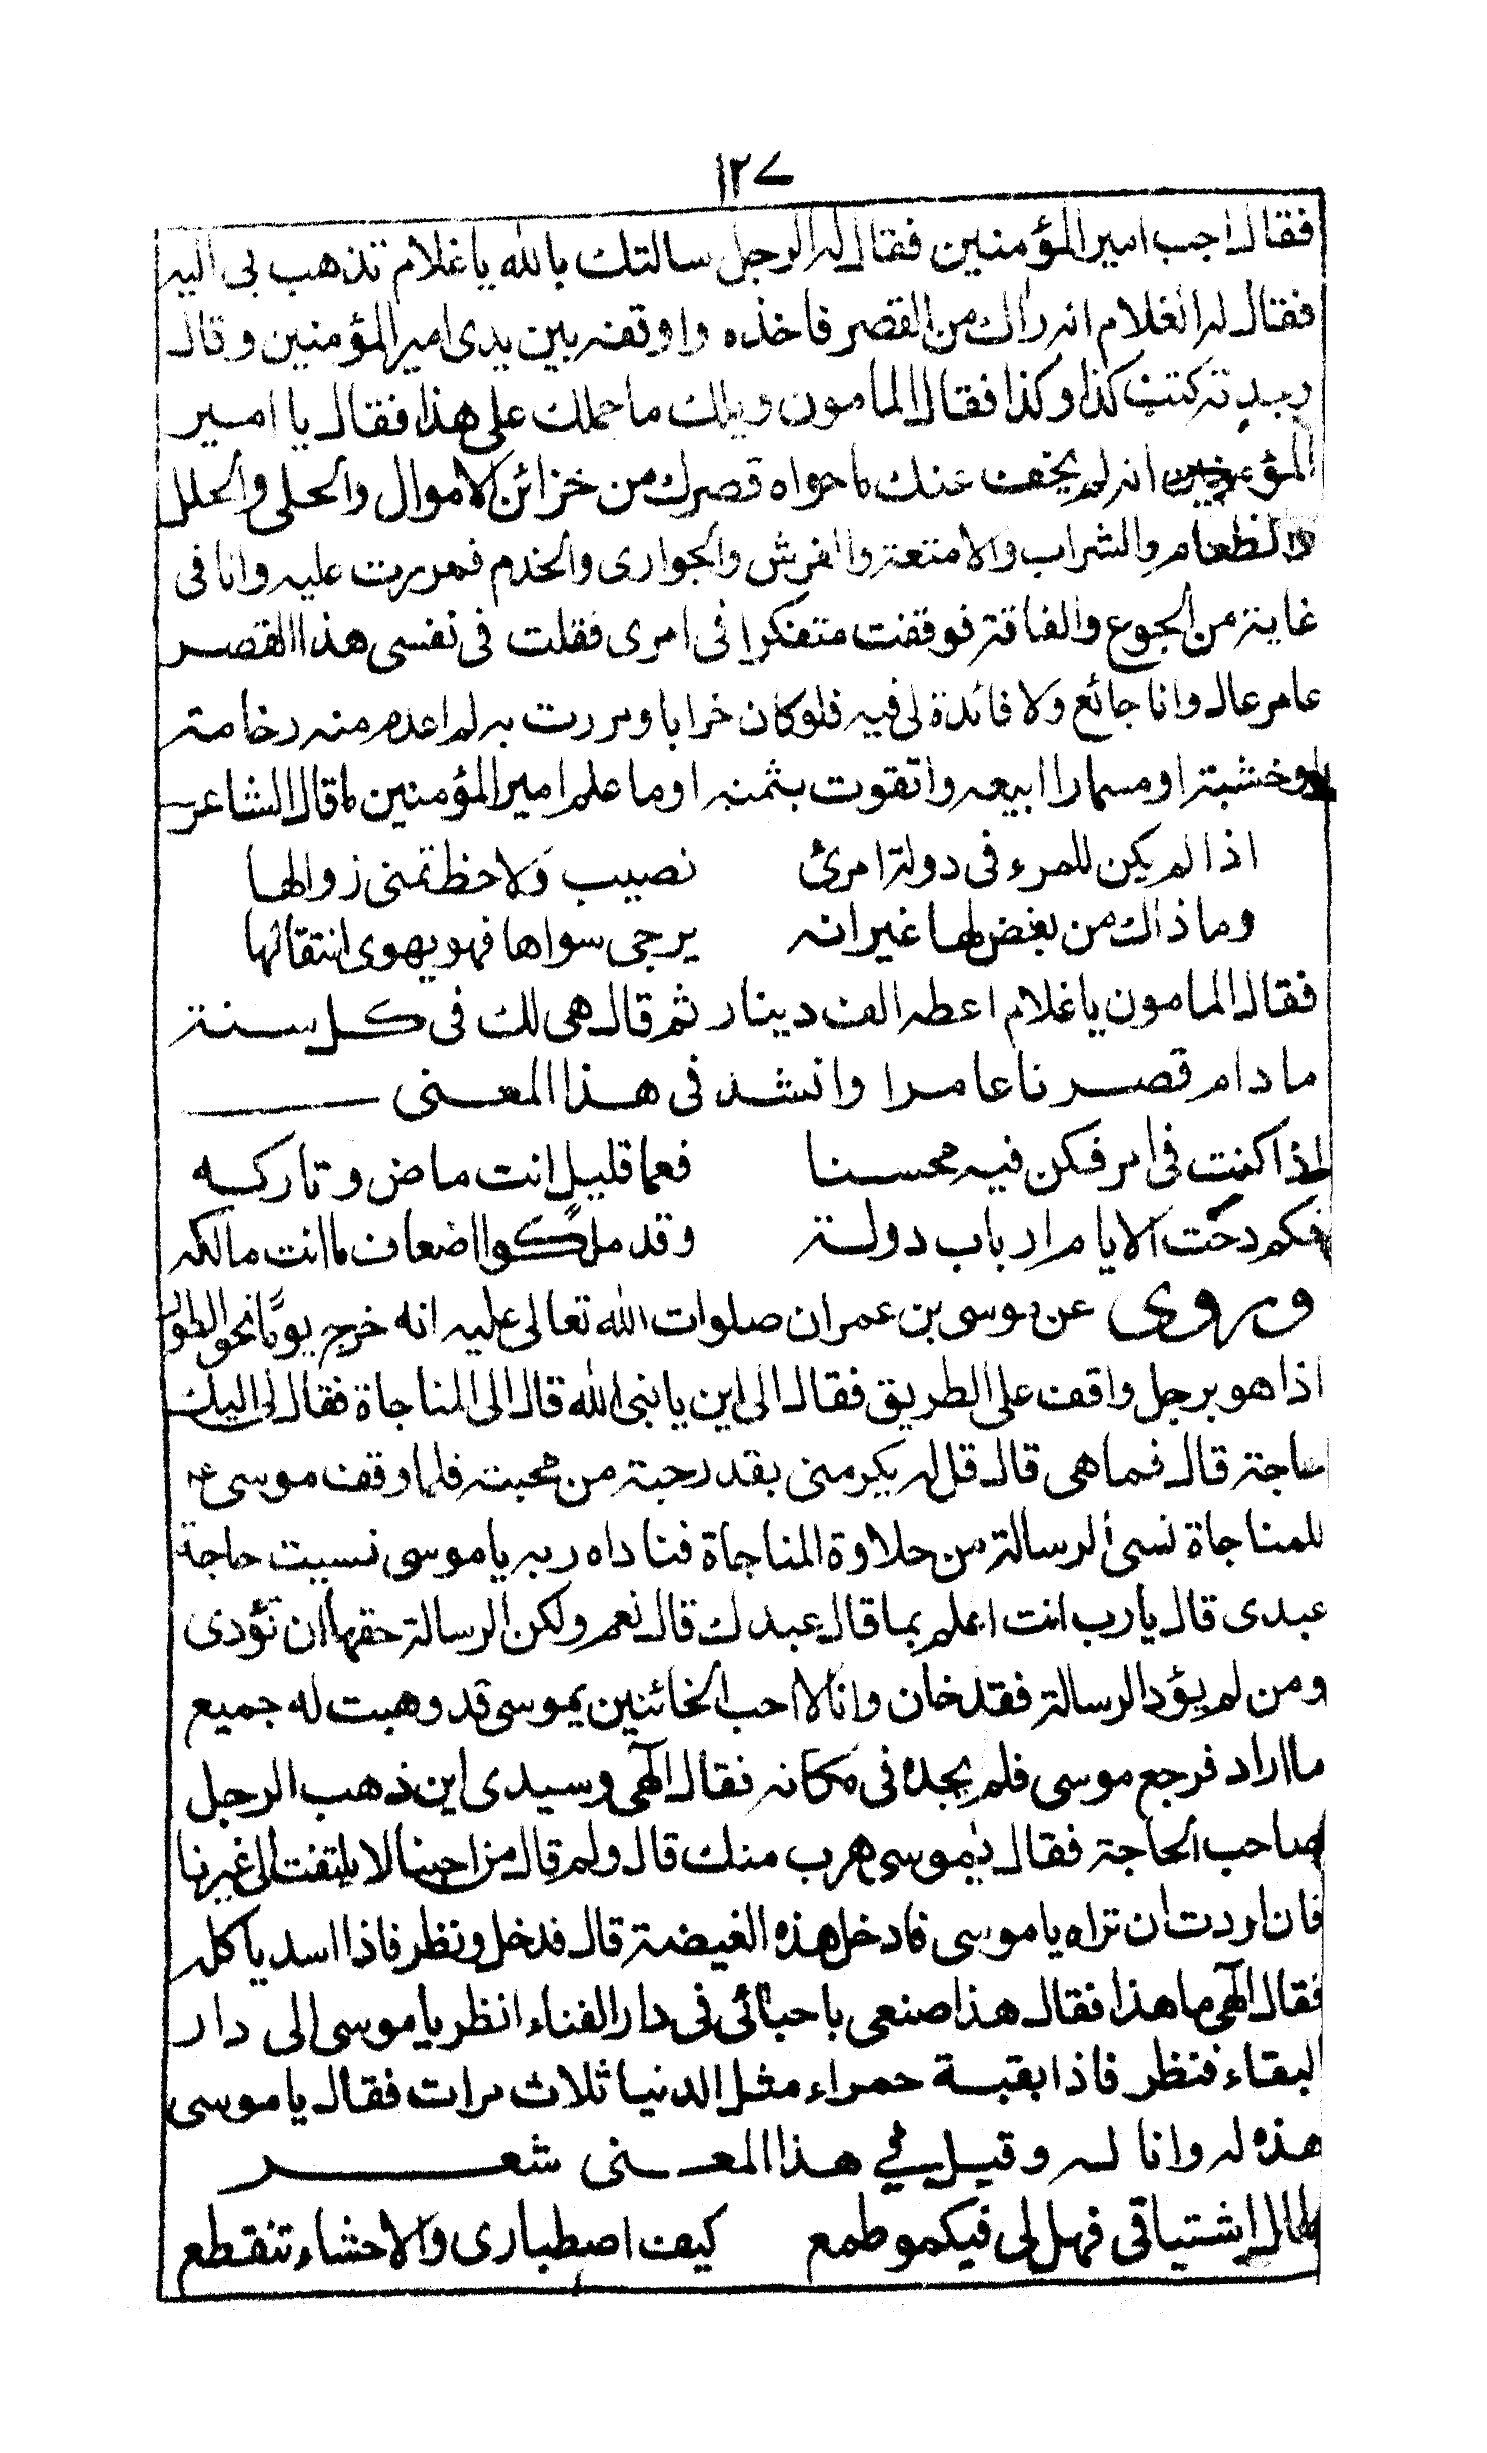 ١٢٧
فقال اجب امير المؤمنين فقال له الرجل سالتك بالله يا غلام تذهب بى اليه
فقال له الغلام انه راك من القصر فاخذه واوقفه بين يدى امير المؤمنين وقال
وجدته كتب كذا وكذا فقال المامون ويلك ما حملك على هذا فقال يا امير
المؤمنين انه لم يخف عنك ما حواه قصرك من خزائن الاموال والحلى والحلل
والطعام والشراب والامتعة والفرش والجوارى والخدم فمررت عليه وانا فى
غاية من الجوع والفاقة فوقفت متفكرا فى امرى فقلت فى نفسى هذا القصر
عامر عال وانا جائع ولا فائدة لى فيه فلو كان خرابا ومررت به لم اعدم منه رخامة
او خشبة او مسمارا ابيعه واتقوت بثمنه او ما علم امير المؤمنين ما قال الشاعر
اذا لم يكن للمرء فى دولة امرئ نصيب ولا حظ تمنى زوالها
وما ذاك من بغض لها غير انه يرجى سواها فهو يهوى انتقالها
فقال المامون يا غلام اعطه الف دينار ثم قال هى لك فى كل سنة
ما دام قصرنا عامرا وانشد فى هذا المعنى
اذا كنت فى امر فكن فيه محسنا فعما قليل انت ماض وتاركه
فكم دحت الايام ارباب دولة وقد ملكوا اضعاف ما انت مالكه
وروى عن موسى بن عمران صلوات الله تعالى عليه انه خرج يومًا نحو الطور
اذا هو برجل واقف على الطريق فقال الى اين يا نبى الله قال الى المناجاة فقال لى اليك
حاجة قال فما هى قال قل له يكرمنى بقدر حبة من محبته فلما وقف موسى ع
للمناجاة نسى الرسالة من حلاوة المناجاة فناداه ربه يا موسى نسيت حاجة
عبدى قال يا رب انت اعلم بما قال عبدك قال نعم ولكن الرسالة حقها ان تؤدى
ومن لم يؤد الرسالة فقد خان وانا لا احب الخائنين يموسى قد وهبت له جميع
ما اراد فرجع موسى فلم يجده فى مكانه فقال الٓهى وسيدى اين ذهب الرجل
صاحب الحاجة فقال يٰموسى هرب منك قال ولم قال من احبنا لا يلتفت الى غيرنا
فان اردت ان تراه يا موسى فادخل هذه الغيضة قال فدخل ونظر فاذا اسد ياكله
فقال الٓهى ما هذا فقال هذا صنعى باحبائى فى دار الفناء انظر يا موسى الى دار
البقاء فنظر فاذا بقبة حمراء مثل الدنيا ثلاث مرات فقال يا موسى
هذه له وانا له وقيل فى هذا المعنى شعر
طال اشتياقى فهل لى فيكمو طمع كيف اصطبارى والاحشاء تنقطع